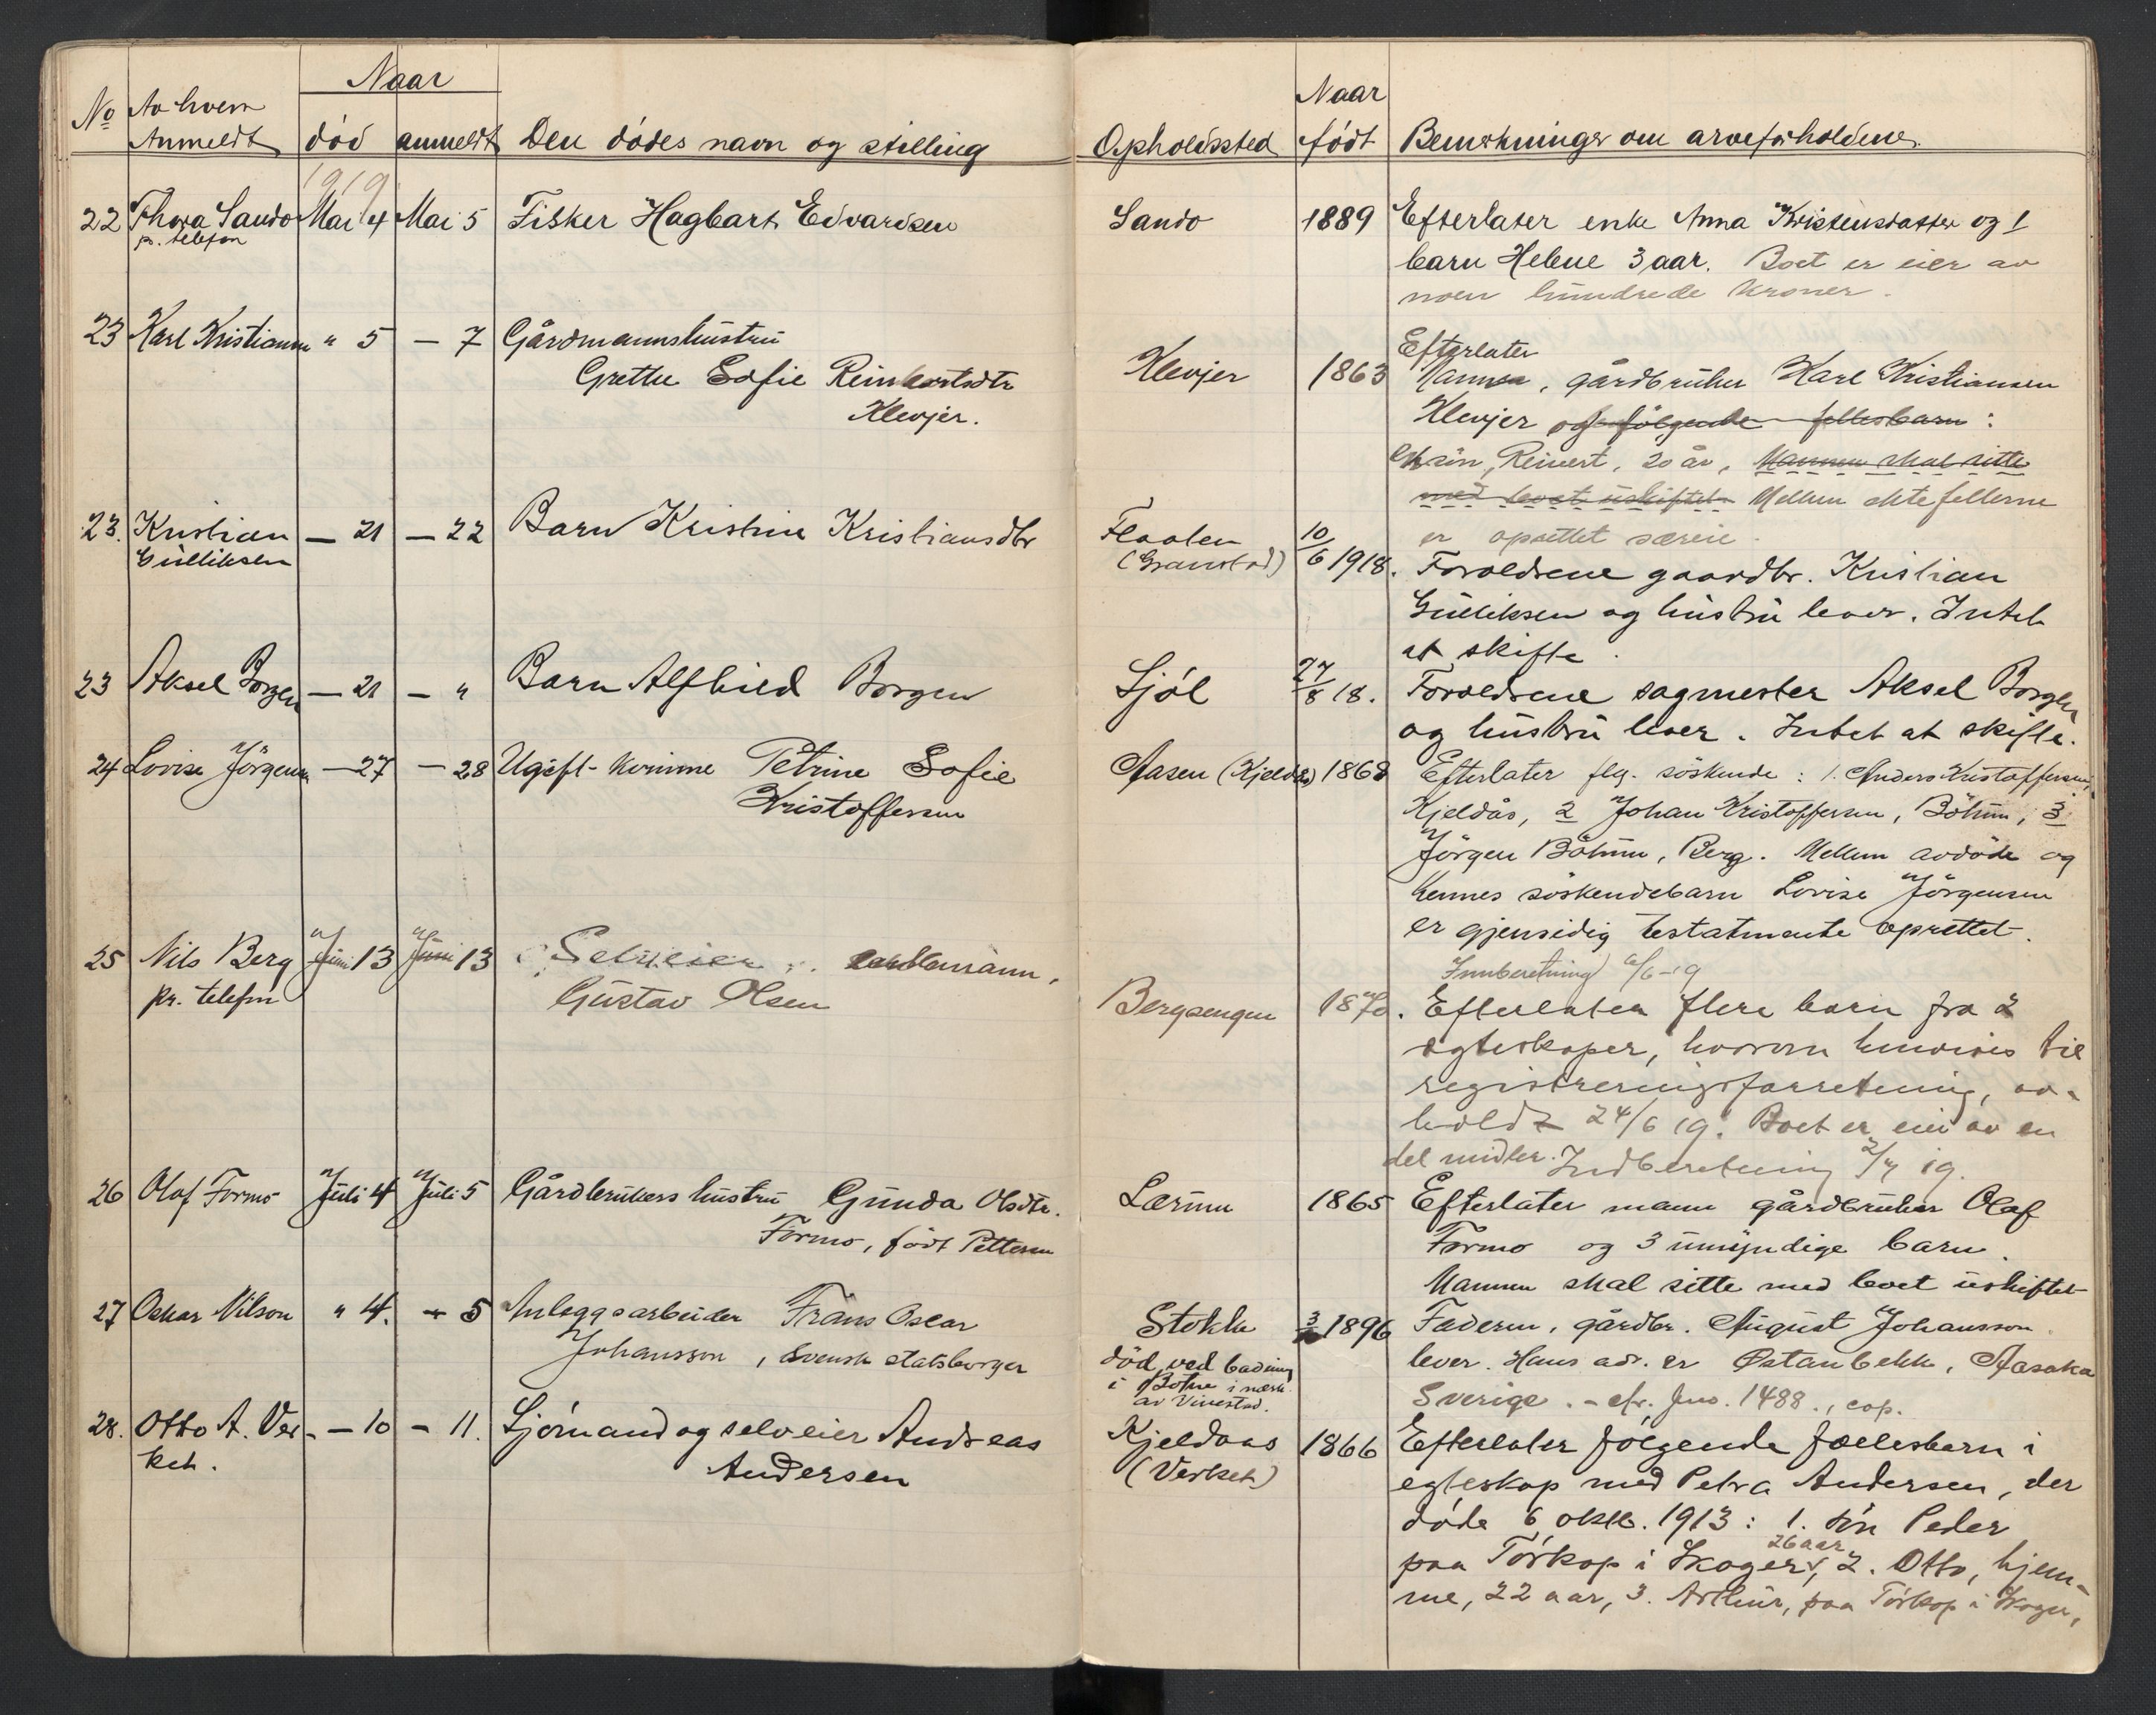 No Av hvem Anmeldt
Naar
død anmeldt
Den dødes navn og stilling
Opholdssted
Naar født
Bemerkninger om arveforholdene.
1919
22 Thora Sando Mai 4 Mai 5 Fisker Hagbart Edvardsen
pr. telefon
Sando 1889 Efterlater enke Anna Kristensdatter og 1
barn Helene 3 aar. Boet er eier av
noen hundrede kroner.
23 Karl Kristiansen " 5 — 7 Gårdmannshustru
Grethe Sofie Reinhartsdtr
Klevjer.
Klevjer 1863 Efterlater
Mannen, gårdbruker Karl Kristiansen
Klevjer og følgende fellesbarn :
En sön, Reinert, 20 år, Mannen skal sitte
med boet uskiftet. Mellem ektefellerne
er oprettet særeie.
23. Kristian — 21 — 22 Barn Kristine Kristiansdtr
Gulliksen
Flaaten
(Granstad)
10/6 1918. Forældrene gaardbr. Kristian
Gulliksen og hustru lever. Intet
at skifte.
23 Aksel Borgen — 21 — " Barn Alfhild Borgen
Sjøl 27/8 18. Forældrene sagmester Aksel Borgen
og hustru lever. Intet at skifte.
24 Lovise Jörgensen — 27 — 28 Ugift kvinne Petrine Sofie
Kristoffersen
Aasen (Kjeldås) 1868 Efterlater flg. söskende : 1. Anders Kristoffersen,
Kjeldås, 2 Johan Kristoffersen, Böhmn, 3
Jörgen Böhmn, Berg. Mellem avdöde og
hennes söskendebarn Lovise Jörgensen
er gjensidig testatmente oprettet.
Innberetning 6/6-19
25 Nils Berg Juni 13 Juni 13 Selveier
pr. telefon
Gustav Olsen
Bergsengen 1870. Efterlater flere barn fra 2
egteskaper, hvorom henvises til
registreringsforretning, av-
holdt 24/6 19. Boet er eier av en
del midler. Indberetning 2/7 19.
26 Olaf Formo Juli 4 Juli 5 Gårdbrukers hustru Gunda Olsdtr.
Formo, födt Pettersen
Lærum 1865 Efterlater mann gårdbruker Olaf
Formo og 3 umyndige barn.
Mannen skal sitte med boet uskiftet
27 Oskar Nilson " 4. — 5 Anleggsarbeider Frans Oscar
Johansson, svensk statsborger
Stokke
död ved bading
i Botne i nærh.
av Vinestad.
1896 Faderen, gårdbr. August Johansson
lever. Hans adr. er Østanbekk, Aasaka
Sverige. - cfr. Jno. 1488., cop.
28. Otto A. Ver- — 10 — 11. Sjømand og selveier Andreas
ket.
Andersen
Kjeldaas
(Verket)
1866 Efterlater følgende fællesbarn i
egteskap med Petra Andersen, der
døde 6 okt. 1913 : 1. søn Peder
26 aar
paa Torkop i Skoger, 2. Otto, hjem-
me, 22 aar, 3. Arthur, paa Torkop i Skoger,